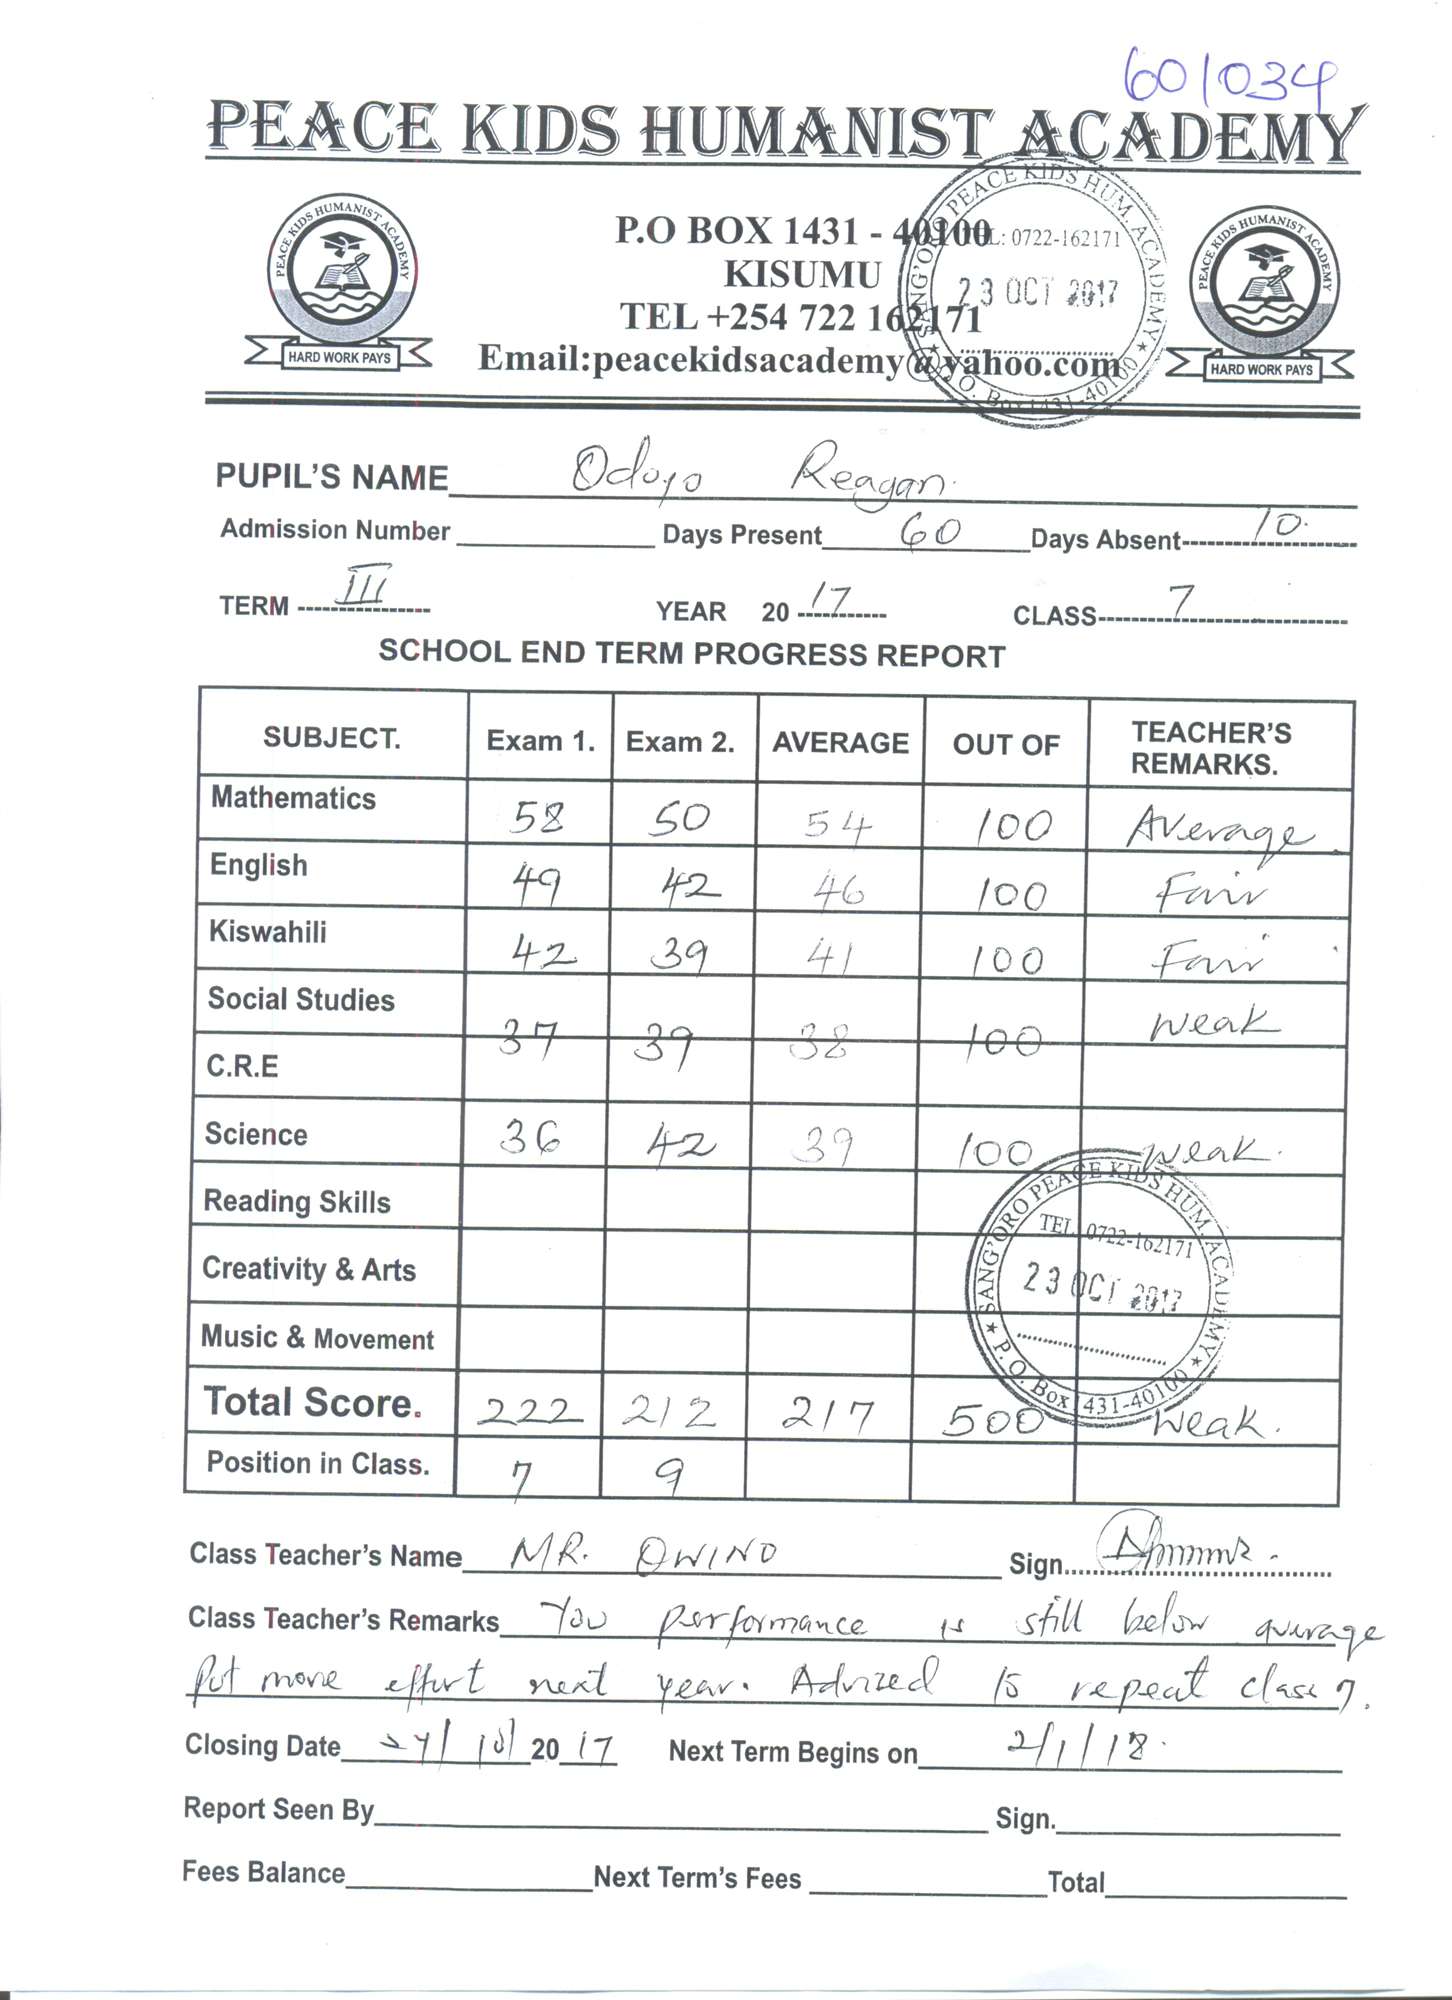 601034
PEACE KIDS HUMANIST ACADEMY
PEACE KIDS HUMANIST ACADEMY
HARD WORK PAYS
P.O BOX 1431 - 40100
KISUMU
TEL +254 722 162171
Email:peacekidsacademy@yahoo.com
SANG'ORO PEACE KIDS HUM. ACADEMY
TEL: 0722-162171
23 OCT 2017
P.O. Box 1431-40100
PEACE KIDS HUMANIST ACADEMY
HARD WORK PAYS
PUPIL'S NAME Odoyo Reagan.
Admission Number Days Present 60 Days Absent 10.
TERM III YEAR 2017 CLASS 7
SCHOOL END TERM PROGRESS REPORT
SUBJECT. Exam 1. Exam 2. AVERAGE OUT OF TEACHER'S REMARKS.
Mathematics 58 50 54 100 Average.
English 49 42 46 100 Fair
Kiswahili 42 39 41 100 Fair
Social Studies 37 39 38 100 Weak
C.R.E
Science 36 42 39 100 Weak.
Reading Skills
Creativity & Arts
Music & Movement
SANG'ORO PEACE KIDS HUM. ACADEMY
TEL 0722-162171
23 OCT 2017
P.O. Box 1431-40100
Total Score. 222 212 217 500 Weak.
Position in Class. 7 9
Class Teacher's Name MR. OWINO Sign
Class Teacher's Remarks You performance is still below average
Put more effort next year. Advized to repeat class 7.
Closing Date 24/10/2017 Next Term Begins on 2/1/18.
Report Seen By Sign.
Fees Balance Next Term's Fees Total